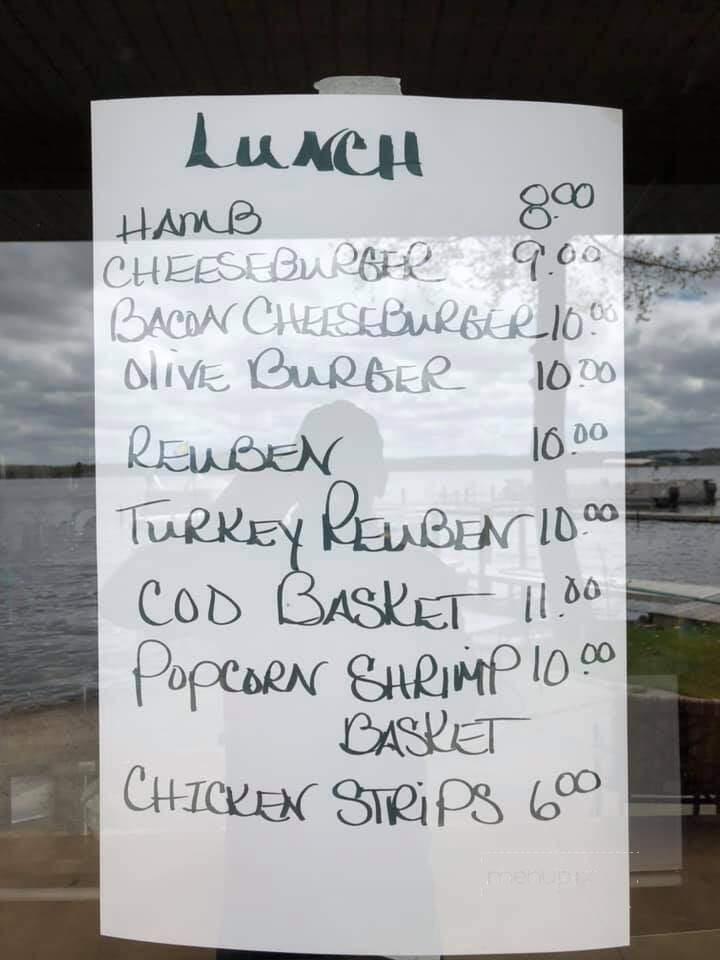 LUNCH
HAMB 8.00
CHEESEBURGER 9.00
BACON CHEESEBURGER 10.00
OLIVE BURGER 10.00
REUBEN 10.00
TURKEY REUBEN 10.00
COD BASKET 11.00
POPCORN SHRIMP 10.00
BASKET
CHICKEN STRIPS 6.00
menupix